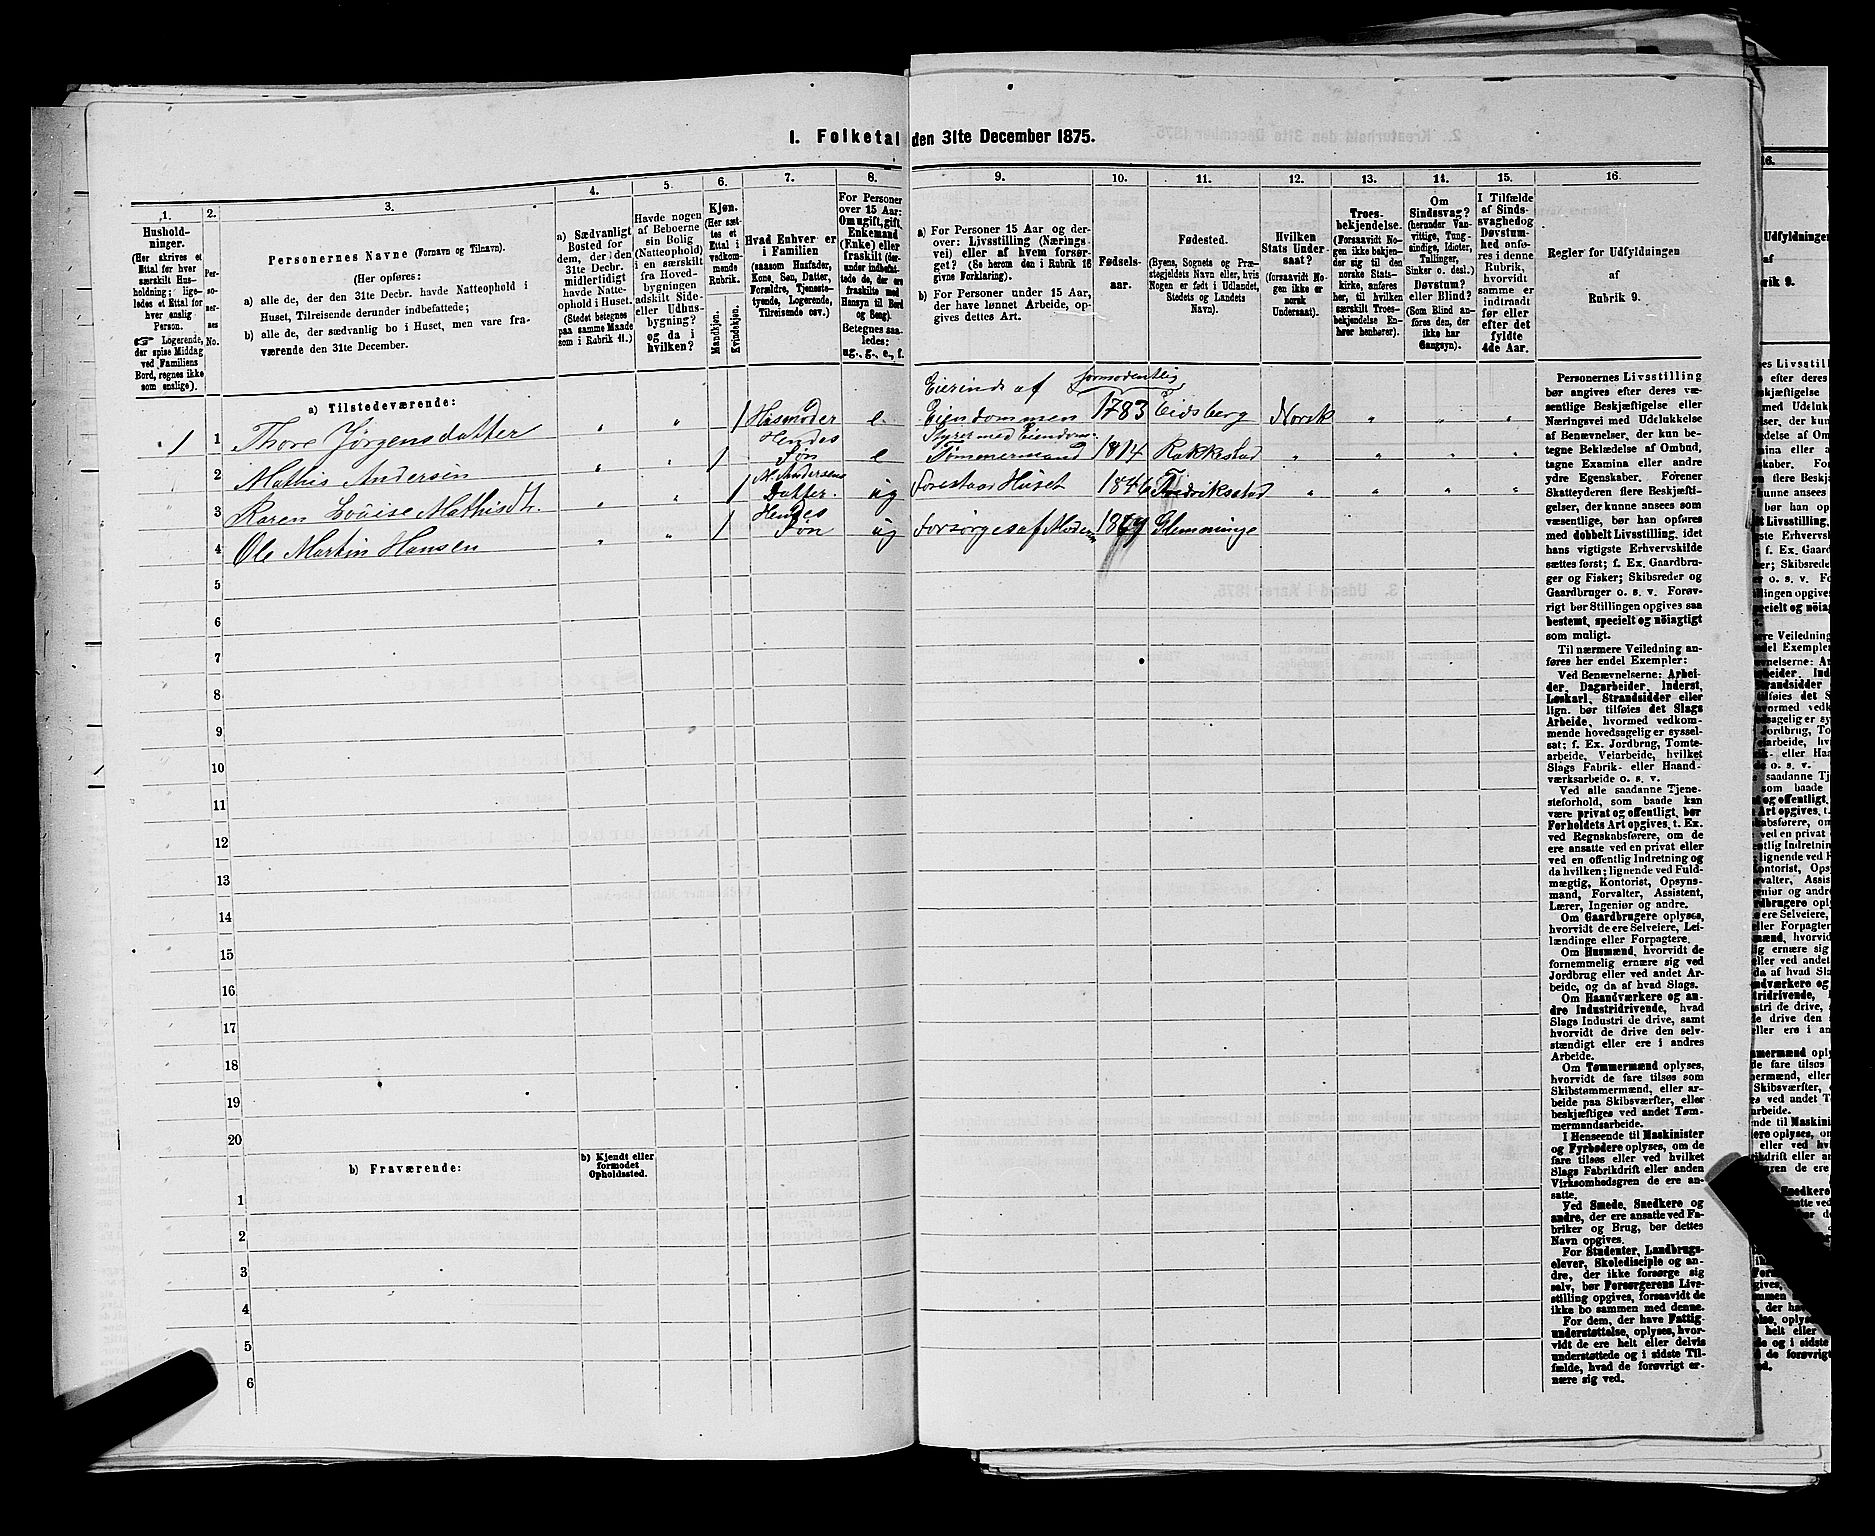 1. Folketal den 31te December 1875.
1.
Hushold-
ninger.
(Her skrives et
Ettal for hver
særskilt Hus-
holdning; lige-
ledes et Ettal for
hver enslig
Person.
☞ Logerende,
der spise Middag
ved Familiens
Bord, regnes ikke
som enslige).
2.
Per-
so-
ner-
nes
No.
3.
Personernes Navne (Fornavn og Tilnavn).
(Her opføres:
a) alle de, der den 31te Decbr. havde Natteophold i
Huset, Tilreisende derunder indbefattede;
b) alle de, der sædvanlig bo i Huset, men vare fra-
værende den 31te December.
4.
a) Sædvanligt
Bosted for
dem, der den
31te Decbr.
midlertidigt
havde Natte-
ophold i Huset.
(Stedet betegnes
paa samme Maade
som i Rubrik 11.)
5.
Havde nogen
af Beboerne
sin Bolig
(Natteophold)
i en særskilt
fra Hoved-
bygningen
adskilt Side-
eller Udhus-
bygning?
og da i
hvilken?
6.
Kjøn.
(Her sæt-
tes et
Ettal i
vedkom-
mende
Rubrik.
Mandkjøn.
Kvindekjøn.
7.
Hvad Enhver er
i Familien
(saasom Husfader,
Kone, Søn, Datter,
Forældre, Tjeneste-
tyende, Logerende,
Tilreisende osv.)
8.
For Personer
over 15 Aar:
Om ugift, gift,
Enkemand
(Enke) eller
fraskilt (der-
under indbefat-
tede de, der ere
fraskilte med
Hensyn til Bord
og Seng).
Betegnes saa-
ledes:
ug., g., e., f.
9.
a) For Personer 15 Aar og der-
over: Livsstilling (Nærings-
vei) eller af hvem forsør-
get? (Se herom den i Rubrik 16
givne Forklaring).
b) For Personer under 15 Aar,
der have lønnet Arbeide, op-
gives dettes Art.
10.
Fødsels-
aar.
11.
Fødested.
(Byens, Sognets og Præ-
stegjeldets Navn eller, hvis
Nogen er født i Udlandet,
Stedets og Landets
Navn).
12.
Hvilken
Stats Under-
saat?
(forsaavidt No-
gen ikke er
norsk
Undersaat).
13.
Troes-
bekjendelse.
(Forsaavidt No-
gen ikke bekjen-
der sig til den
norske Stats-
kirke, anføres
her, til hvilken
særskilt Troes-
bekjendelse En-
hver henhører).
14.
Om
Sindssvag?
(herunder Van-
vittige, Tung-
sindige, Idioter,
Tullinger,
Sinker o. desl.)
Døvstum?
eller Blind?
(Som Blind an-
føres den, der
ikke har
Gangsyn).
15.
I Tilfælde
af Sinds-
svaghed og
Døvstum-
hed anfø-
res i denne
Rubrik,
hvorvidt
samme er
indtraadt
før eller
efter det
fyldte
4de Aar.
16.
Regler for Udfyldningen
af
Rubrik 9.
a) Tilstedeværende:
1 1 Thore Jørgensdatter " " 1 Husmoder e. Eierinde af Eiendommen formodentlig 1783 Eidsberg Norsk " " "
2 Mathis Andersen " " 1 Hendes Søn e Styrer med Eiendom. Tømmermand 1814 Rakkestad " " " "
3 Karen Lovise Mathisdt. " " 1 M. Andersens Datter. ug Forestaar Huset 1846 Fredriksstad " " " "
4 Ole Martin Hansen " " 1 Hendes Søn ug Forsørges af Moderen Glemminge
5
6
7
8
9
10
11
12
13
14
15
16
17
18
19
20
b) Fraværende:
b) Kjendt eller
formodet
Opholdssted.
1
2
3
4
5
6
Personernes Livsstilling
bør angives efter deres væ-
sentlige Beskjæftigelse eller
Næringsvei med Udelukkelse
af Benævnelser, der kun be-
tegne Beklædelse af Ombud,
tagne Examina eller andre
ydre Egenskaber. Forener
Skatteyderen flere Beskjæfti-
gelser, der kunne ansees som
væsentlige, bør han opføres
med dobbelt Livsstilling, idet
hans vigtigste Erhvervskilde
sættes først; f. Ex. Gaardbru-
ger og Fisker; Skibsreder og
Gaardbruger o. s. v. Forøv-
rigt bør Stillingen opgives saa
bestemt, specielt og nöiagtigt
som muligt.
Til nærmere Veiledning an-
føres her endel Exempler:
Ved Benævnelserne: Arbei-
der, Dagarbeider, Inderst,
Løskarl, Strandsidder eller
lign. bør tilføies det Slags
Arbeide, hvormed vedkom-
mende hovedsagelig er syssel-
sat; f. Ex. Jordbrug, Tomte-
arbeide, Veiarbeide, hvilket
Slags Fabrik- eller Haand-
værksarbeide o. s. v.
Ved alle saadanne Tjene-
steforhold, som baade kan
være privat og offentligt, bør
Forholdets Art opgives, t. Ex.
ved Regnskabsførere, om de
ere ansatte ved en privat eller
ved en offentlig Indretning og
da hvilken; lignende ved Fuld-
mægtig, Kontorist, Opsyns-
mand, Forvalter, Assistent,
Lærer, Ingeniør og andre.
Om Gaardbrugere oplyses,
hvorvidt de ere Selveiere, Lei-
lændinge eller Forpagtere.
Om Husmænd, hvorvidt de
fornemmelig ernære sig ved
Jordbrug eller ved andet Ar-
beide, og da af hvad Slags.
Om Haandværkere og an-
dre Industridrivende, hvad
Slags Industri de drive, samt
hvorvidt de drive den selv-
stændigt eller ere i andres
Arbeide.
Om Tømmermænd oplyses,
hvorvidt de fare tilsøs som
Skibstømmermænd, eller ar-
beide paa Skibsværfter, eller
beskjæftiges ved andet Tøm-
mermandsarbeide.
I Henseende til Maskinister
og Fyrbødere oplyses, om de
fare tilsøs eller ved hvilket
Slags Fabrikdrift eller anden
Virksomhedsgren de ere an-
satte.
Ved Smede, Snedkere og
andre, der ere ansatte ved Fa-
briker og Brug, bør dettes
Navn opgives.
For Studenter, Landbrugs-
elever, Skoledisciple og an-
dre, der ikke forsørge sig
selv, bør Forsørgerens Live-
stilling opgives, forsaavidt de
ikke bo sammen med denne.
For dem, der have Fattig-
understøttelse, oplyses, hvor-
vidt de ere helt eller delvis
understøttede og i sidste Til-
fælde, hvad de forøvrigt er-
nære sig ved.